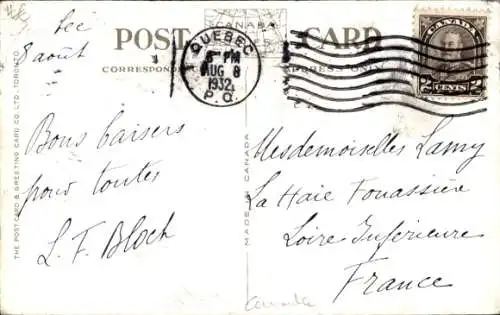 POST CARD
CORRESPONDENCE
CANADA
QUEBEC
PM
AUG 8
1932
P.Q.
CANADA
2 CENTS 2
8 août
Bons baisers
pour toutes
L. F. Bloch
Mesdemoiselles Lamy
La Haie Fouassière
Loire Inférieure
France
Canada
THE POSTCARD & GREETING CARD CO. LTD., TORONTO
MADE IN CANADA